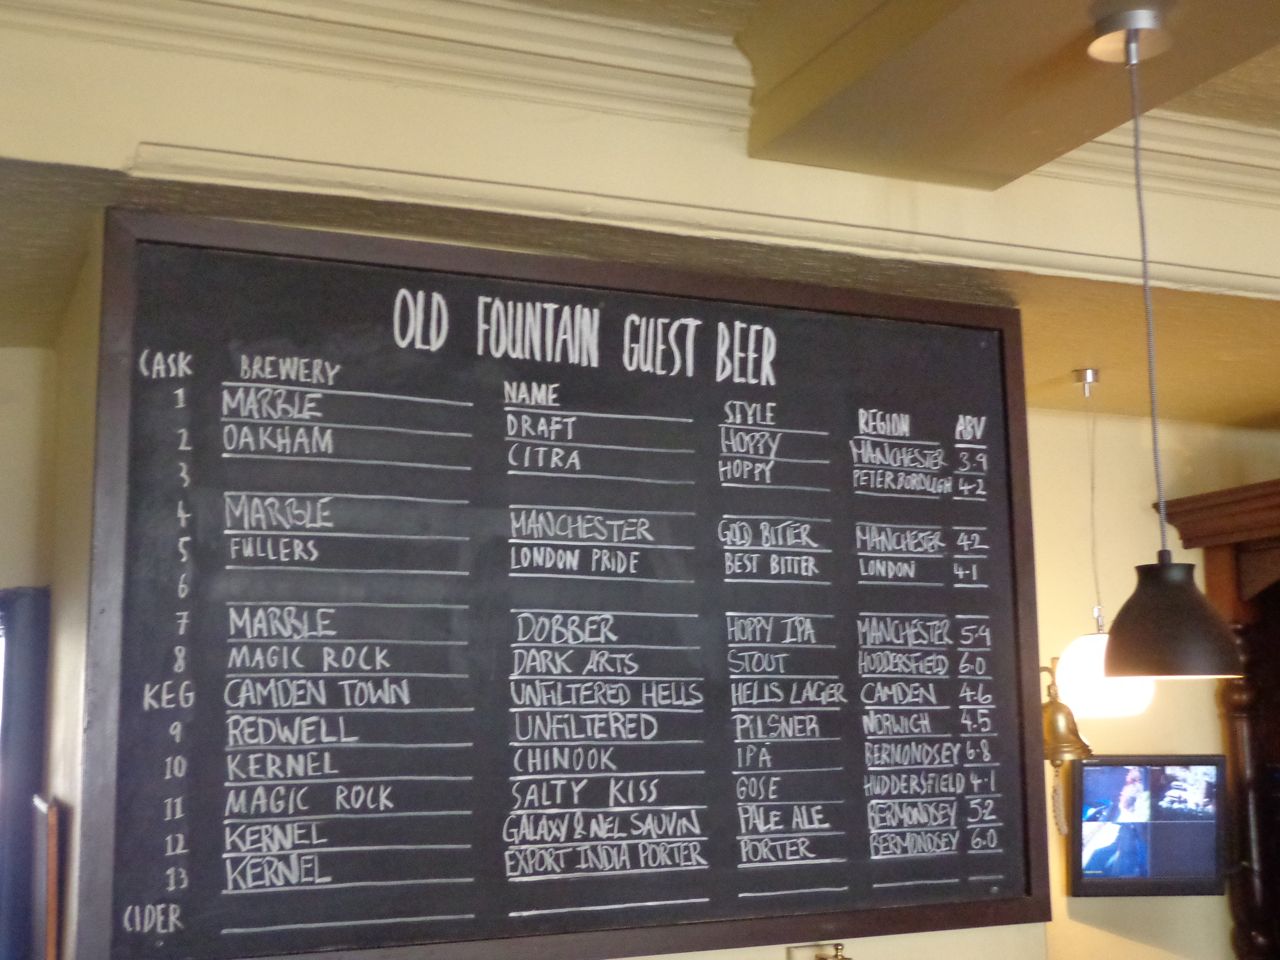 OLD FOUNTAIN GUEST BEER
CASK BREWERY NAME STYLE REGION ABV
1 MARBLE DRAFT HOPPY MANCHESTER 3.9
2 OAKHAM CITRA HOPPY PETERBOROUGH 4.2
3
4 MARBLE MANCHESTER GOLD BITTER MANCHESTER 4.2
5 FULLERS LONDON PRIDE BEST BITTER LONDON 4.1
6
7 MARBLE DOBBER HOPPY IPA MANCHESTER 5.9
8 MAGIC ROCK DARK ARTS STOUT HUDDERSFIELD 6.0
KEG CAMDEN TOWN UNFILTERED HELLS HELLS LAGER CAMDEN 4.6
9 REDWELL UNFILTERED PILSNER NORWICH 4.5
10 KERNEL CHINOOK IPA BERMONDSEY 6.8
11 MAGIC ROCK SALTY KISS GOSE HUDDERSFIELD 4.1
12 KERNEL GALAXY & NEL SAUVIN PALE ALE BERMONDSEY 5.2
13 KERNEL EXPORT INDIA PORTER PORTER BERMONDSEY 6.0
CIDER